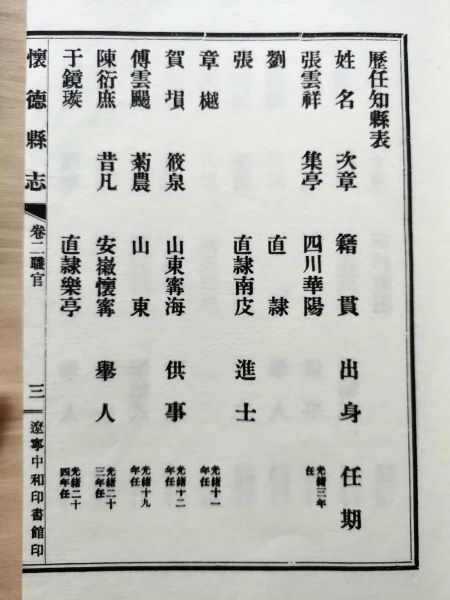 歷任知縣表
姓名 次章 籍貫 出身 任期
張雲祥 集亭 四川華陽 光緒三年任
劉 直隸
張 直隸南皮 進士
章樾 光緒十一年任
賀塤 筱泉 山東寗海 供事 光緒十二年任
傅雲颺 菊農 山東 光緒十九年任
陳衍庶 昔凡 安徽懷寗 舉人 光緒二十三年任
于鏡㵾 直隸樂亭 光緒二十四年任
懷德縣志 卷二 職官 三 遼寧中和印書館印